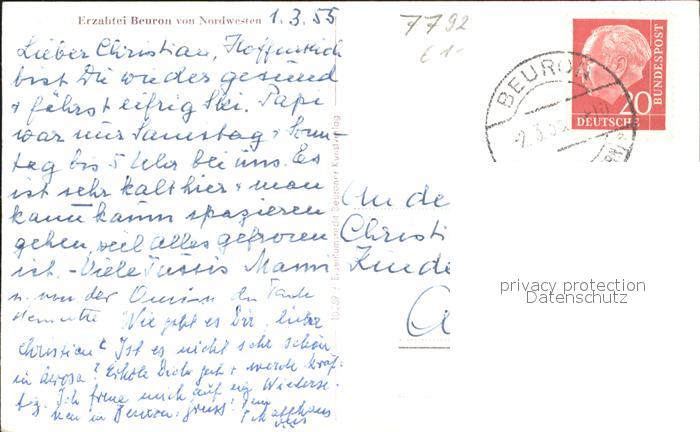 Erzabtei Beuron von Nordwesten 1.3.55
7792
€ 1-
Lieber Christian, Hoffentlich
bist Du wieder gesund
+ fährst eifrig Ski. Papi
war nur Samstag + Sonn-
tag bis 5 Uhr bei uns. Es
ist sehr kalt hier + man
kann kaum spazieren
gehen, weil alles gefroren
ist. - Viele Tussis Mami
u. von der Omimi
Wie geht es Dir, lieber
Christian? Ist es nicht sehr schön
in Arosa? Erhole Dich gut + werde kräf-
tig. Ich freue mich auf ein Wiederse-
hen in Beuron. Gruss!
An de
Christi
Kinde
A
BEURON
2.3.55
20
DEUTSCHE
BUNDESPOST
privacy protection
Datenschutz